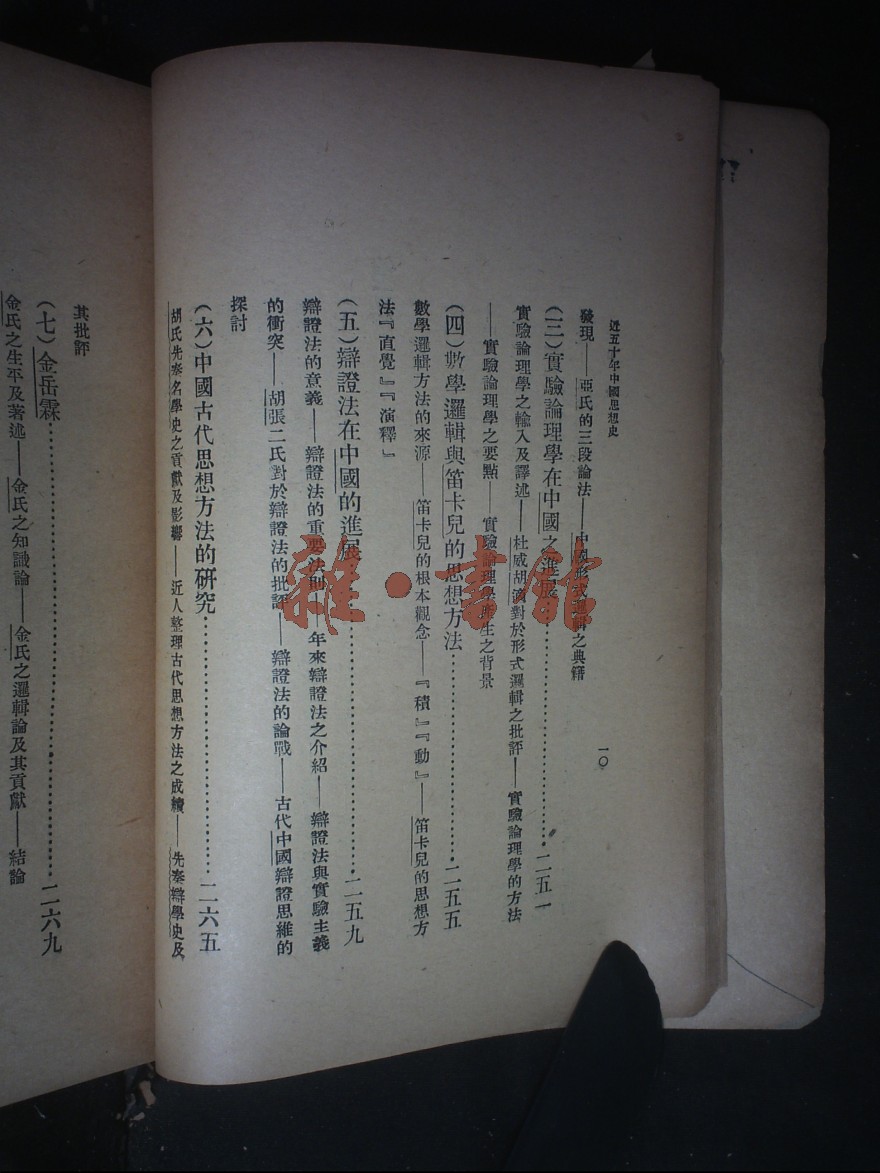 近五十年中國思想史
一〇
發現——亞氏的三段論法——中國形式邏輯之典籍
(三)實驗論理學在中國之進展……二五一
實驗論理學之輸入及譯述——杜威胡適對於形式邏輯之批評——實驗論理學的方法
——實驗論理學之要點——實驗論理學產生之背景
(四)數學邏輯與笛卡兒的思想方法……二五五
數學邏輯方法的來源——笛卡兒的根本觀念——『積』『動』——笛卡兒的思想方
法『直覺』『演釋』
(五)辯證法在中國的進展……二五九
辯證法的意義——辯證法的重要法則——年來辯證法之介紹——辯證法與實驗主義
的衝突——胡張二氏對於辯證法的批評——辯證法的論戰——古代中國辯證思維的
探討
(六)中國古代思想方法的研究……二六五
胡氏先秦名學史之貢獻及影響——近人整理古代思想方法之成績——先秦辯學史及
其批評
(七)金岳霖……二六九
金氏之生平及著述——金氏之知識論——金氏之邏輯論及其貢獻——結論
雜·書館